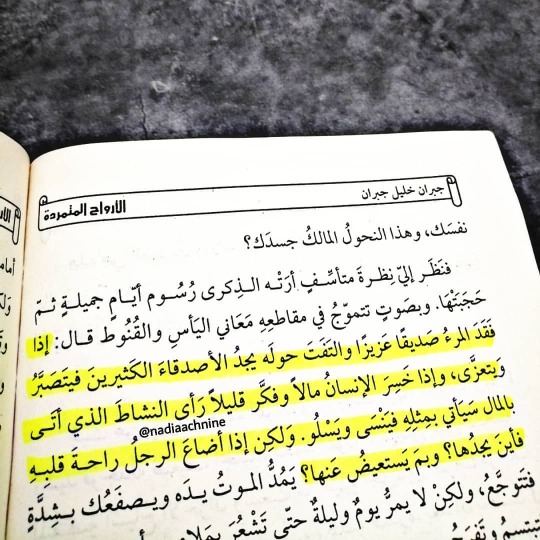 جبران خليل جبران
الأرواح المتمردة
نفسَك، وهذا النحولُ المالكُ جسدَك؟
فنَظَر إليّ نِظرةَ متأسِّفٍ أرَتْه الذِكرى رُسُوم أيّامٍ جميلةٍ ثمّ
حَجَبَتْهَا. وبصَوتٍ تتموّجُ في مقاطعِهِ مَعَاني اليَأسِ والقُنُوط قال: إذا
فَقَدَ المرءُ صَديقًا عَزيزًا والتَفَتَ حولَه يجدُ الأصدقاءَ الكَثيرينَ فيَتَصَبَّرُ
وَيَتعزَّى، وإذا خَسِرَ الإنسانُ مالاً وفكَّر قليلاً رَأى النشاطَ الذي أتَى
بالمال سَيَأتي بمِثلِهِ فيَنْسَى ويَسْلُو. وَلكِن إذا أضاعَ الرجلُ راحةَ قلبِهِ
@nadiaachnine
فأينَ يجدُها؟ وبمَ يَستعيضُ عَنها؟ يَمُدُّ الموتُ يدَه ويصفَعُك بشدَّةٍ
فتتوجَّعُ، ولكِنْ لا يمرُّ يومٌ وليلةٌ حتّى تَشْعُرَ